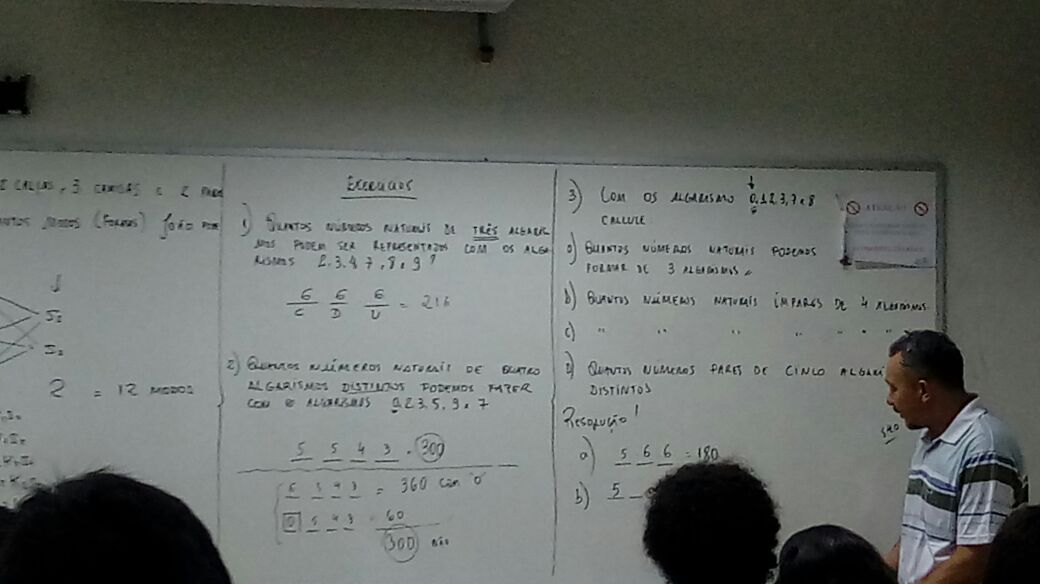 E CALÇAS, 3 CAMISAS E 2
MODOS (FORMAS) JOÃO
J
2 = 12 MODOS
EXERCÍCIOS
1) QUANTOS NÚMEROS NATURAIS DE TRÊS ALGARIS
MOS PODEM SER REPRESENTADOS COM OS ALGA
RISMOS 2,3,4,7,8,9?
6 6 6 = 216
C D U
2) QUANTOS NÚMEROS NATURAIS DE QUATRO
ALGARISMOS DISTINTOS PODEMOS FAZER
COM OS ALGARISMOS 0,2,3,5,9,7
5 5 4 3 = 300
6 5 4 3 = 360 COM 0
0 5 4 3 = 60
300 NÃO
3) COM OS ALGARISMO 0,1,2,3,7,8
CALCULE:
a) QUANTOS NÚMEROS NATURAIS PODEMOS
FORMAR DE 3 ALGARISMOS
b) QUANTOS NÚMEROS NATURAIS ÍMPARES DE 4 ALGARISMOS
c) " " " " " " "
d) QUANTOS NÚMEROS PARES DE CINCO
DISTINTOS
RESOLUÇÃO!
a) 5 6 6 = 180
b) 5
540
ATENÇÃO